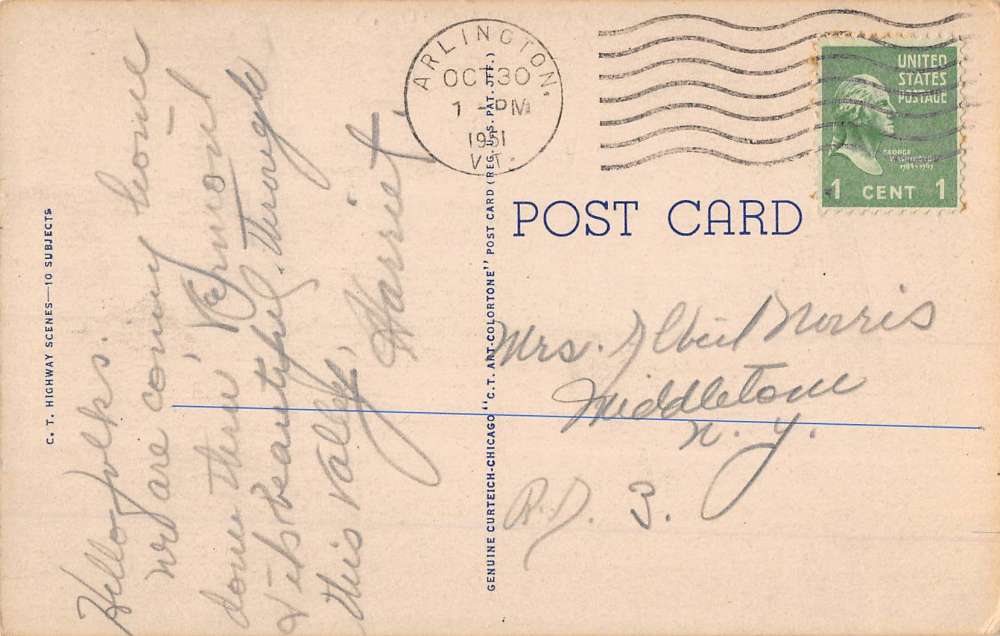 C. T. HIGHWAY SCENES—10 SUBJECTS
Hello folks.
we are coming home
down thru Vermont
& its beautiful through
this valley.
Harriet,
GENUINE CURTEICH-CHICAGO "C. T. ART-COLORTONE" POST CARD (REG. U.S. PAT. OFF.)
ARLINGTON,
OCT 30
1 - PM
1951
VT.
UNITED
STATES
POSTAGE
GEORGE
WASHINGTON
1789-1797
1 CENT 1
POST CARD
Mrs. Albert Norris
Middletown
N. Y.
R.D. 3.